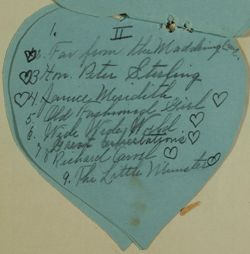 1. II
2. Far from the Madding
3 Hon. Peter Stirling
4. Janice Meridith
5. Old Fashioned Girl
6. Wide Wide World
7 Great Expectations
8 Richard Carvel
9. The Little Minister